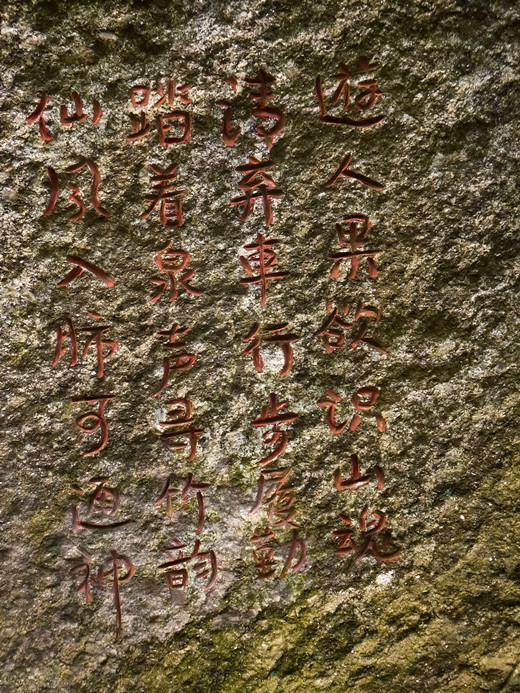 遊人果欲识山魂
请弃車行步履勤
踏着泉声寻竹韵
仙风入肺可通神